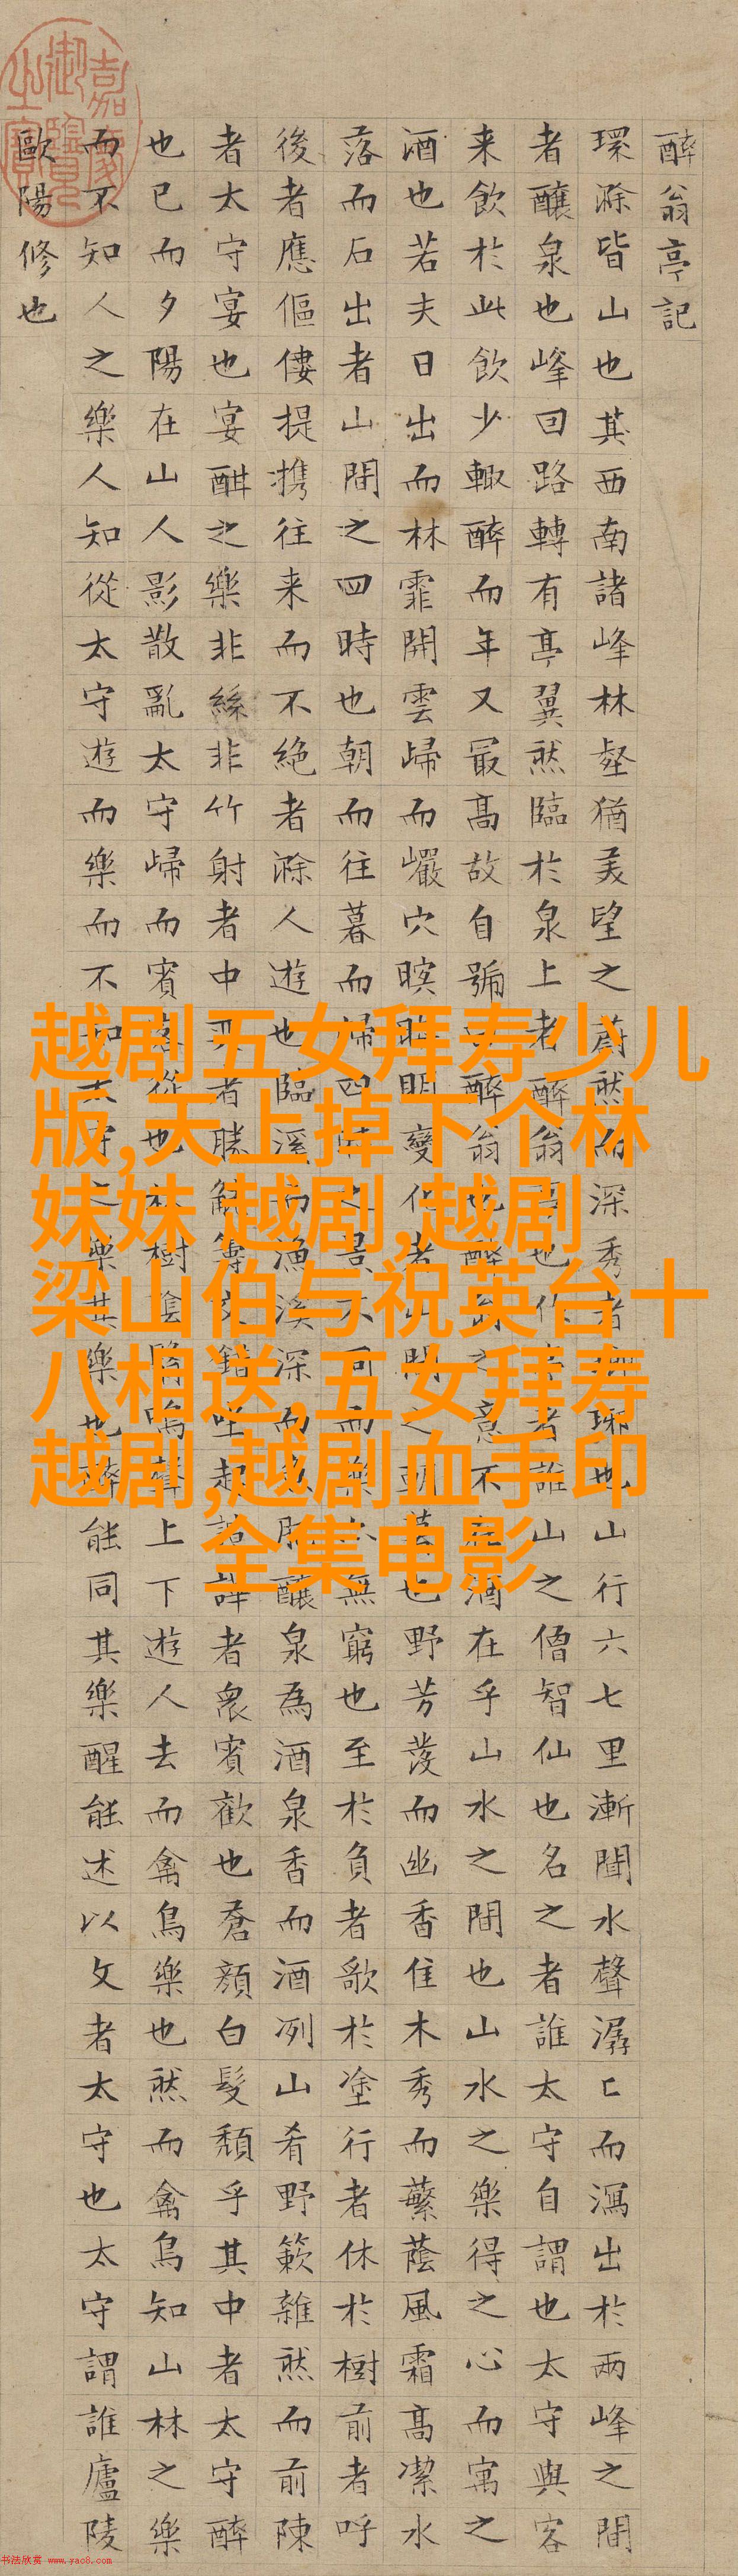 醉翁亭記
環滁皆山也其西南諸峰林壑猶美望之蔚然而深秀者琅琊也山行六七里漸聞水聲潺〻而瀉出於兩峰之間
者釀泉也峰回路轉有亭翼然臨於泉上者醉翁亭也作亭者誰山之僧智仙也名之者誰太守自謂也太守與客
来飲於此飲少輙醉而年又最高故自號曰醉翁也醉翁之意不在酒在乎山水之間也山水之樂得之心而寓之
酒也若夫日出而林霏開雲歸而巖穴暝晦明變化者山間之朝暮也野芳發而幽香佳木秀而蘩蔭風霜高潔水
落而石出者山間之四時也朝而往暮而歸四時之景不同而樂亦無窮也至於負者歌於塗行者休於樹前者呼
後者應傴僂提携往来而不絶者滁人遊也臨溪而漁溪深而魚肥釀泉為酒泉香而酒冽山肴野簌雜然而前陳
者太守宴也宴酣之樂非絲非竹射者中弈者勝觥籌交錯坐起諠譁者衆賓歡也蒼顔白髮頹乎其中者太守醉
也已而夕陽在山人影散亂太守歸而賓客從也林樹陰翳鳴聲上下遊人去而禽鳥樂也然而禽鳥知山林之樂
而不知人之樂人知從太守遊而樂而不知太守之樂其樂也醉能同其樂醒能述以文者太守也太守謂誰廬陵
歐陽修也
嘉慶御覽之寶
越剧五女拜寿少儿
版,天上掉下个林
妹妹 越剧,越剧
梁山伯与祝英台十
八相送,五女拜寿
越剧,越剧血手印
全集电影
书法欣赏 www.yac8.com